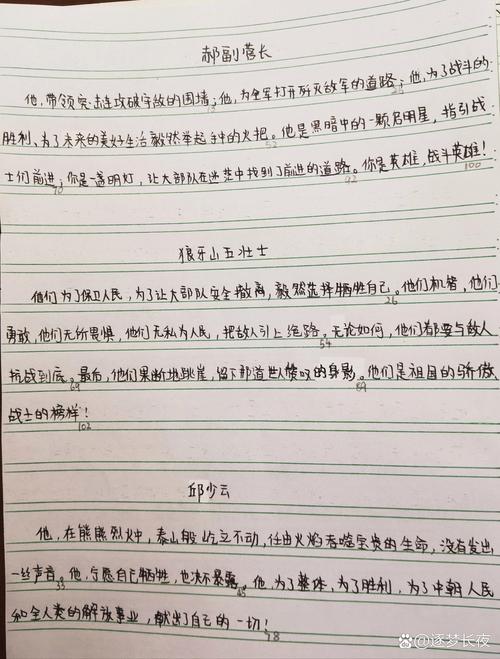 郝副营长
他,带领突击连攻破守敌的围墙;他,为全军打开歼灭敌军的道路;他,为了战斗的
25
胜利、为了未来的美好生活毅然举起手中的火把。他是黑暗中的一颗启明星,指引战
52
士们前进;你是一盏明灯,让大部队在迷茫中找到了前进的道路。你是英雄,战斗英雄!
70 92 100
狼牙山五壮士
他们为了保卫人民,为了让大部队安全撤离,毅然选择牺牲自己。他们机智,他们
26
勇敢,他们无所畏惧,他们无私为人民,把敌人引上绝路。无论如何,他们都要与敌人
54
抗战到底。最后,他们果断地跳崖,留下那道世人赞叹的身影。他们是祖国的骄傲,
69 89
战士的榜样!
102
邱少云
他,在熊熊烈火中,泰山般屹立不动,任由火焰吞噬宝贵的生命,没有发出
一丝声音。他,宁愿自己牺牲,也决不暴露。他,为了整体,为了胜利,为了中朝人民
33 45
和全人类的解放事业,献出了自己的一切!
78
Bai百科 @逐梦长夜